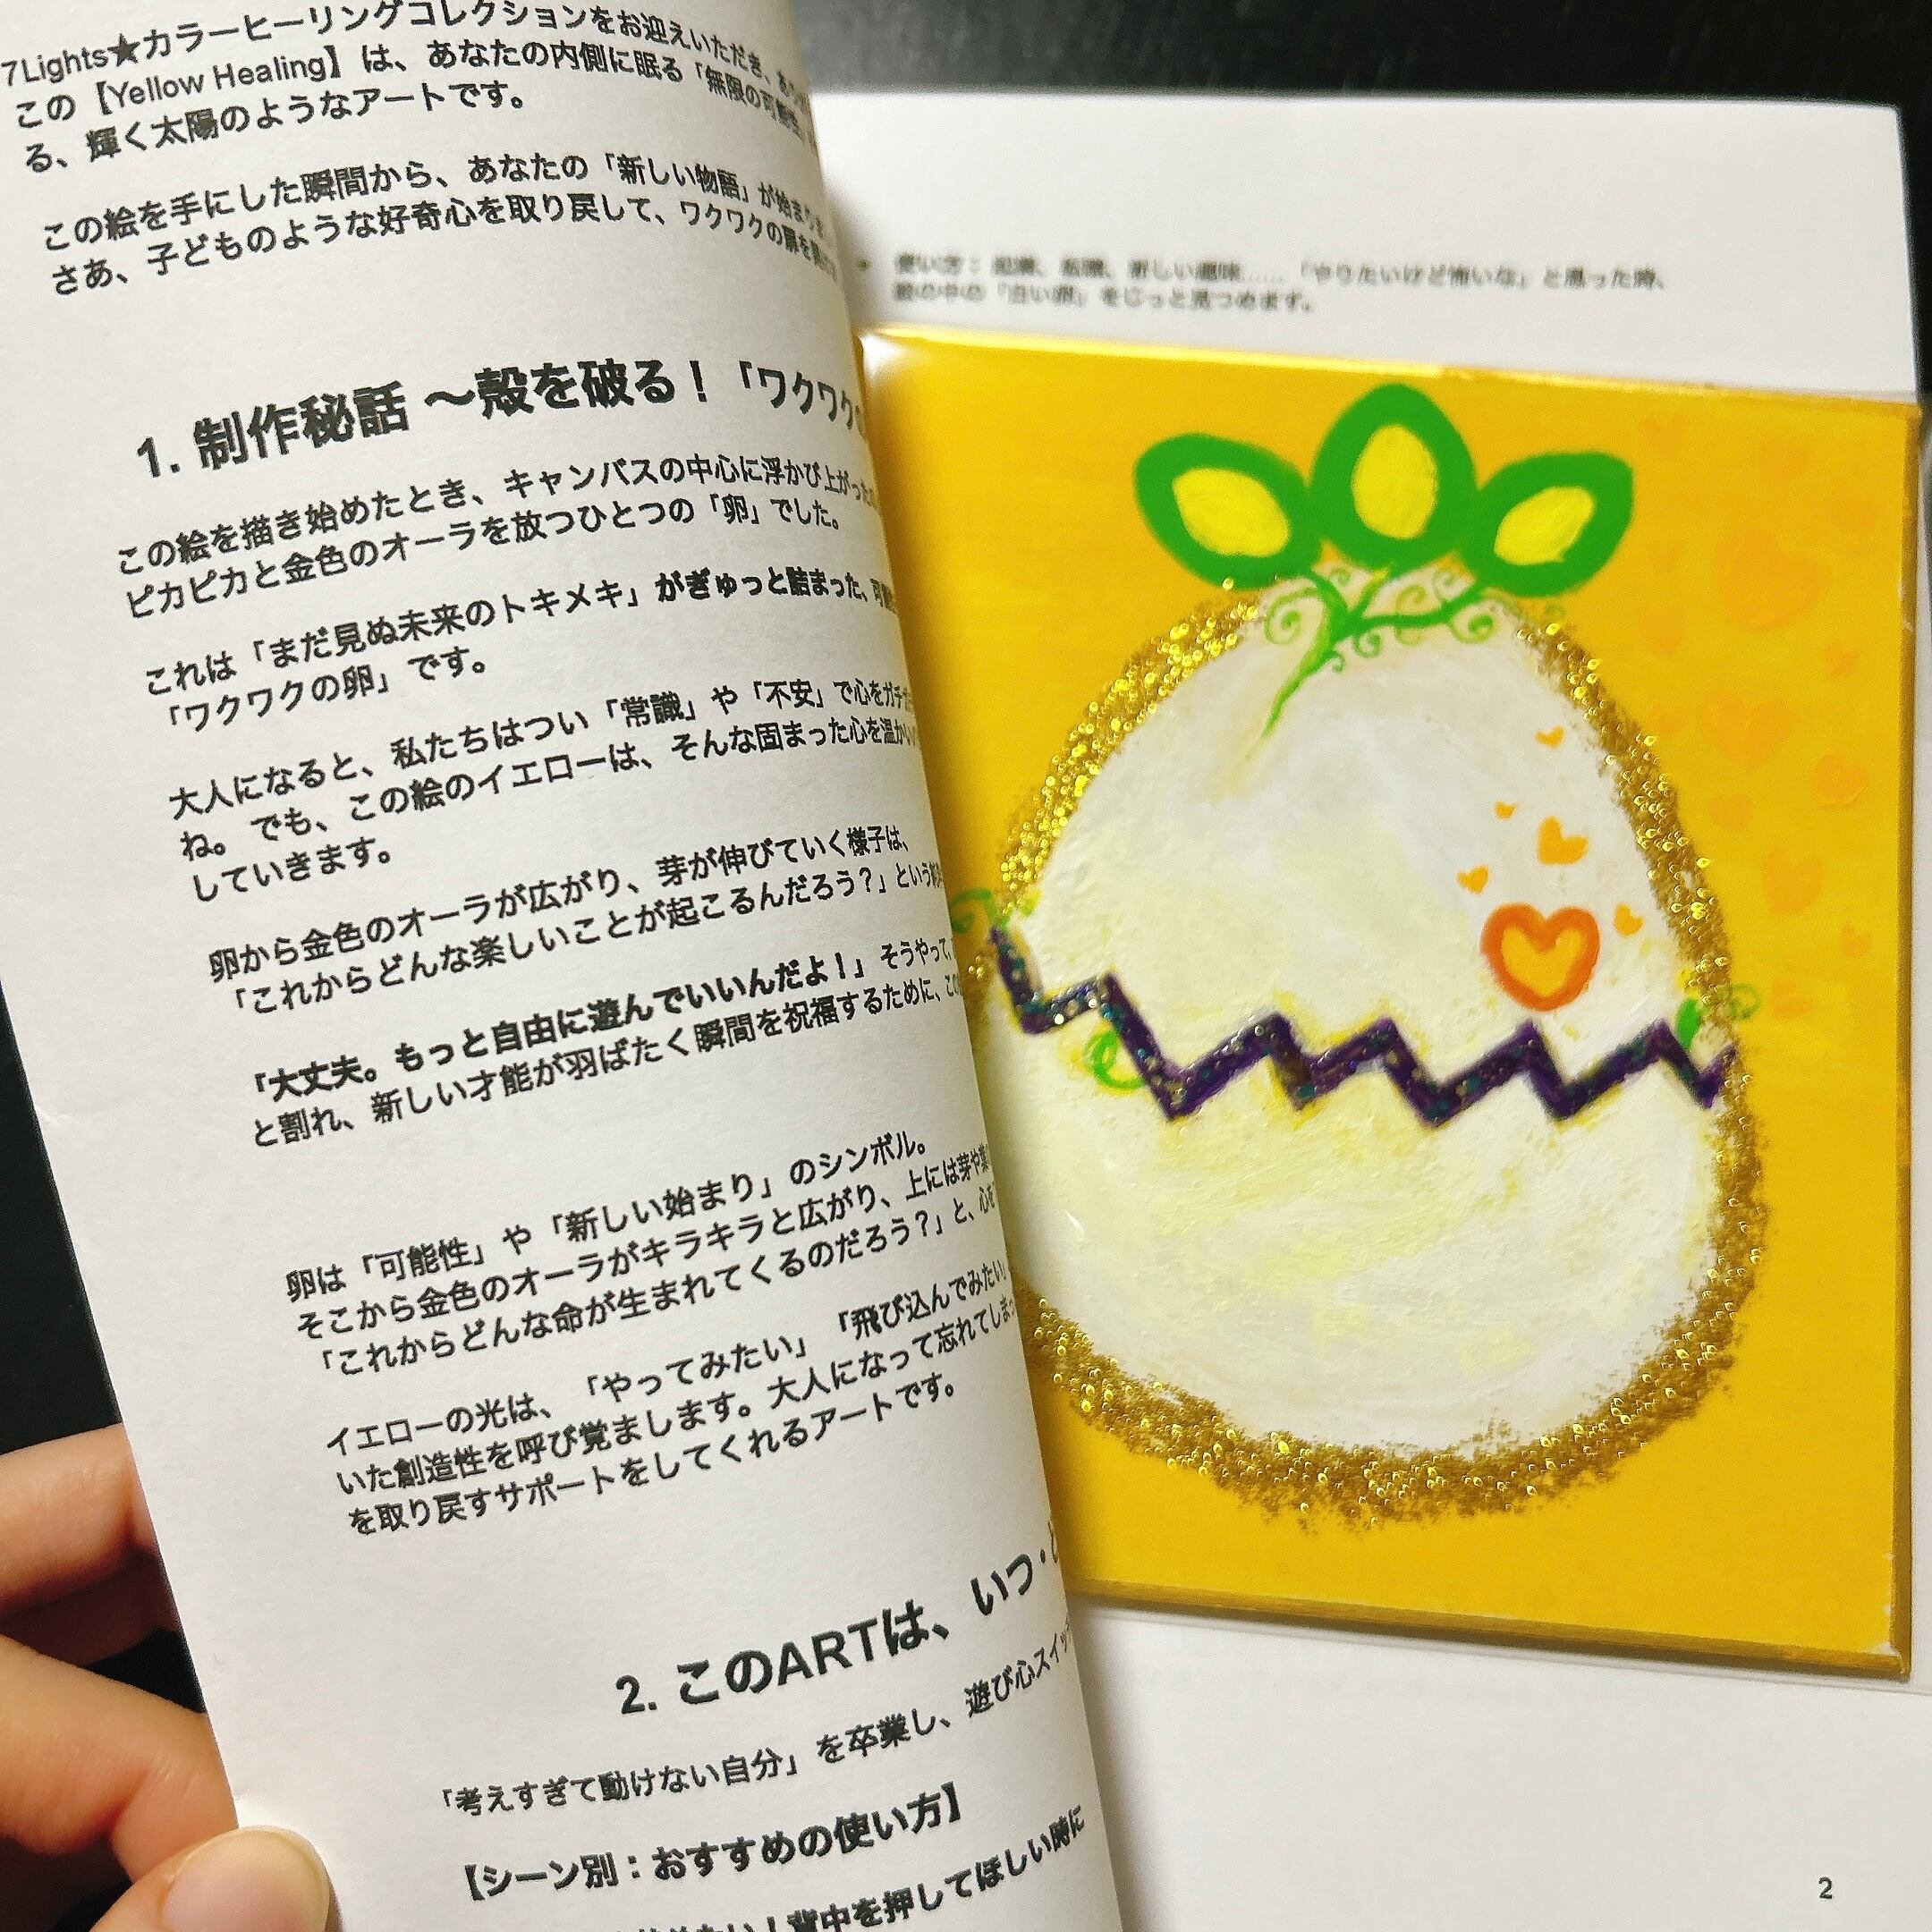 7Lights★カラーヒーリングコレクションをお迎えいただき、
この【Yellow Healing】は、あなたの内側に眠る「無限の可能性」
る、輝く太陽のようなアートです。
この絵を手にした瞬間から、あなたの「新しい物語」が始まりま
さあ、子どものような好奇心を取り戻して、ワクワクの扉を開
1. 制作秘話 ～殻を破る！「ワクワク
この絵を描き始めたとき、キャンバスの中心に浮かび上がった
ピカピカと金色のオーラを放つひとつの「卵」でした。
これは「まだ見ぬ未来のトキメキ」がぎゅっと詰まった、可
「ワクワクの卵」です。
大人になると、私たちはつい「常識」や「不安」で心をガチ
ね。 でも、この絵のイエローは、そんな固まった心を温か
していきます。
卵から金色のオーラが広がり、芽が伸びていく様子は、
「これからどんな楽しいことが起こるんだろう？」という
「大丈夫。もっと自由に遊んでいいんだよ！」 そうやって、
と割れ、新しい才能が羽ばたく瞬間を祝福するために、こ
卵は「可能性」や「新しい始まり」のシンボル。
そこから金色のオーラがキラキラと広がり、上には芽や葉
「これからどんな命が生まれてくるのだろう？」と、心を
イエローの光は、「やってみたい」「飛び込んでみたい」
いた創造性を呼び覚まします。大人になって忘れてしまっ
を取り戻すサポートをしてくれるアートです。
2. このARTは、いつ・ど
「考えすぎて動けない自分」を卒業し、遊び心スイッチ
【シーン別：おすすめの使い方】
背中を押してほしい時に
使い方： 起業、転職、新しい趣味……「やりたいけど怖いな」と思った時、
絵の中の「白い卵」をじっと見つめます。
2